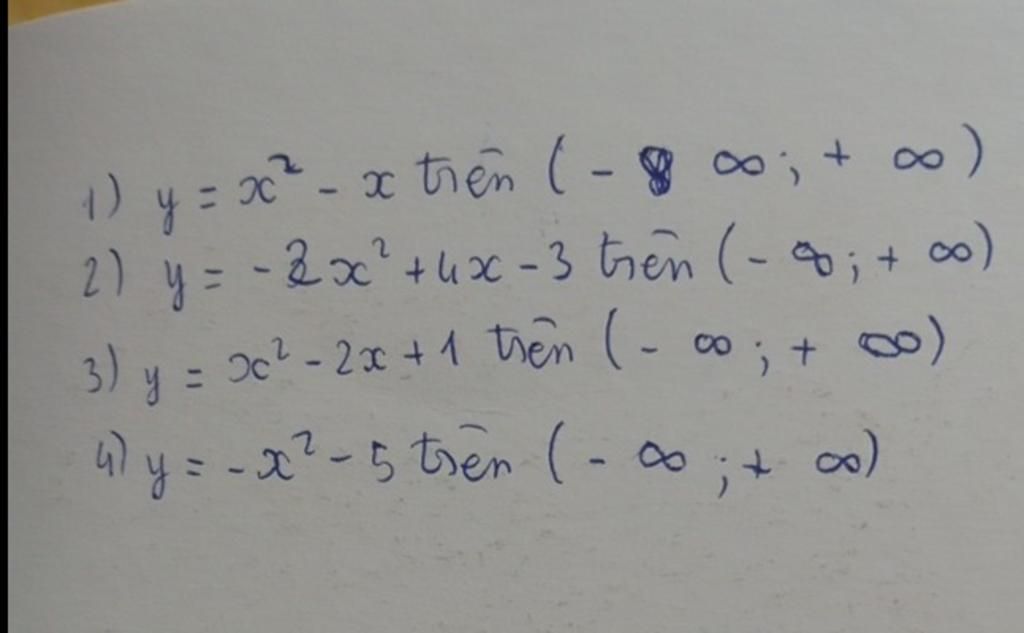 1) y = x² - x trên (- ∞ ; + ∞)
2) y = -2x² + 4x - 3 trên (- ∞ ; + ∞)
3) y = x² - 2x + 1 trên (- ∞ ; + ∞)
4) y = -x² - 5 trên (- ∞ ; + ∞)